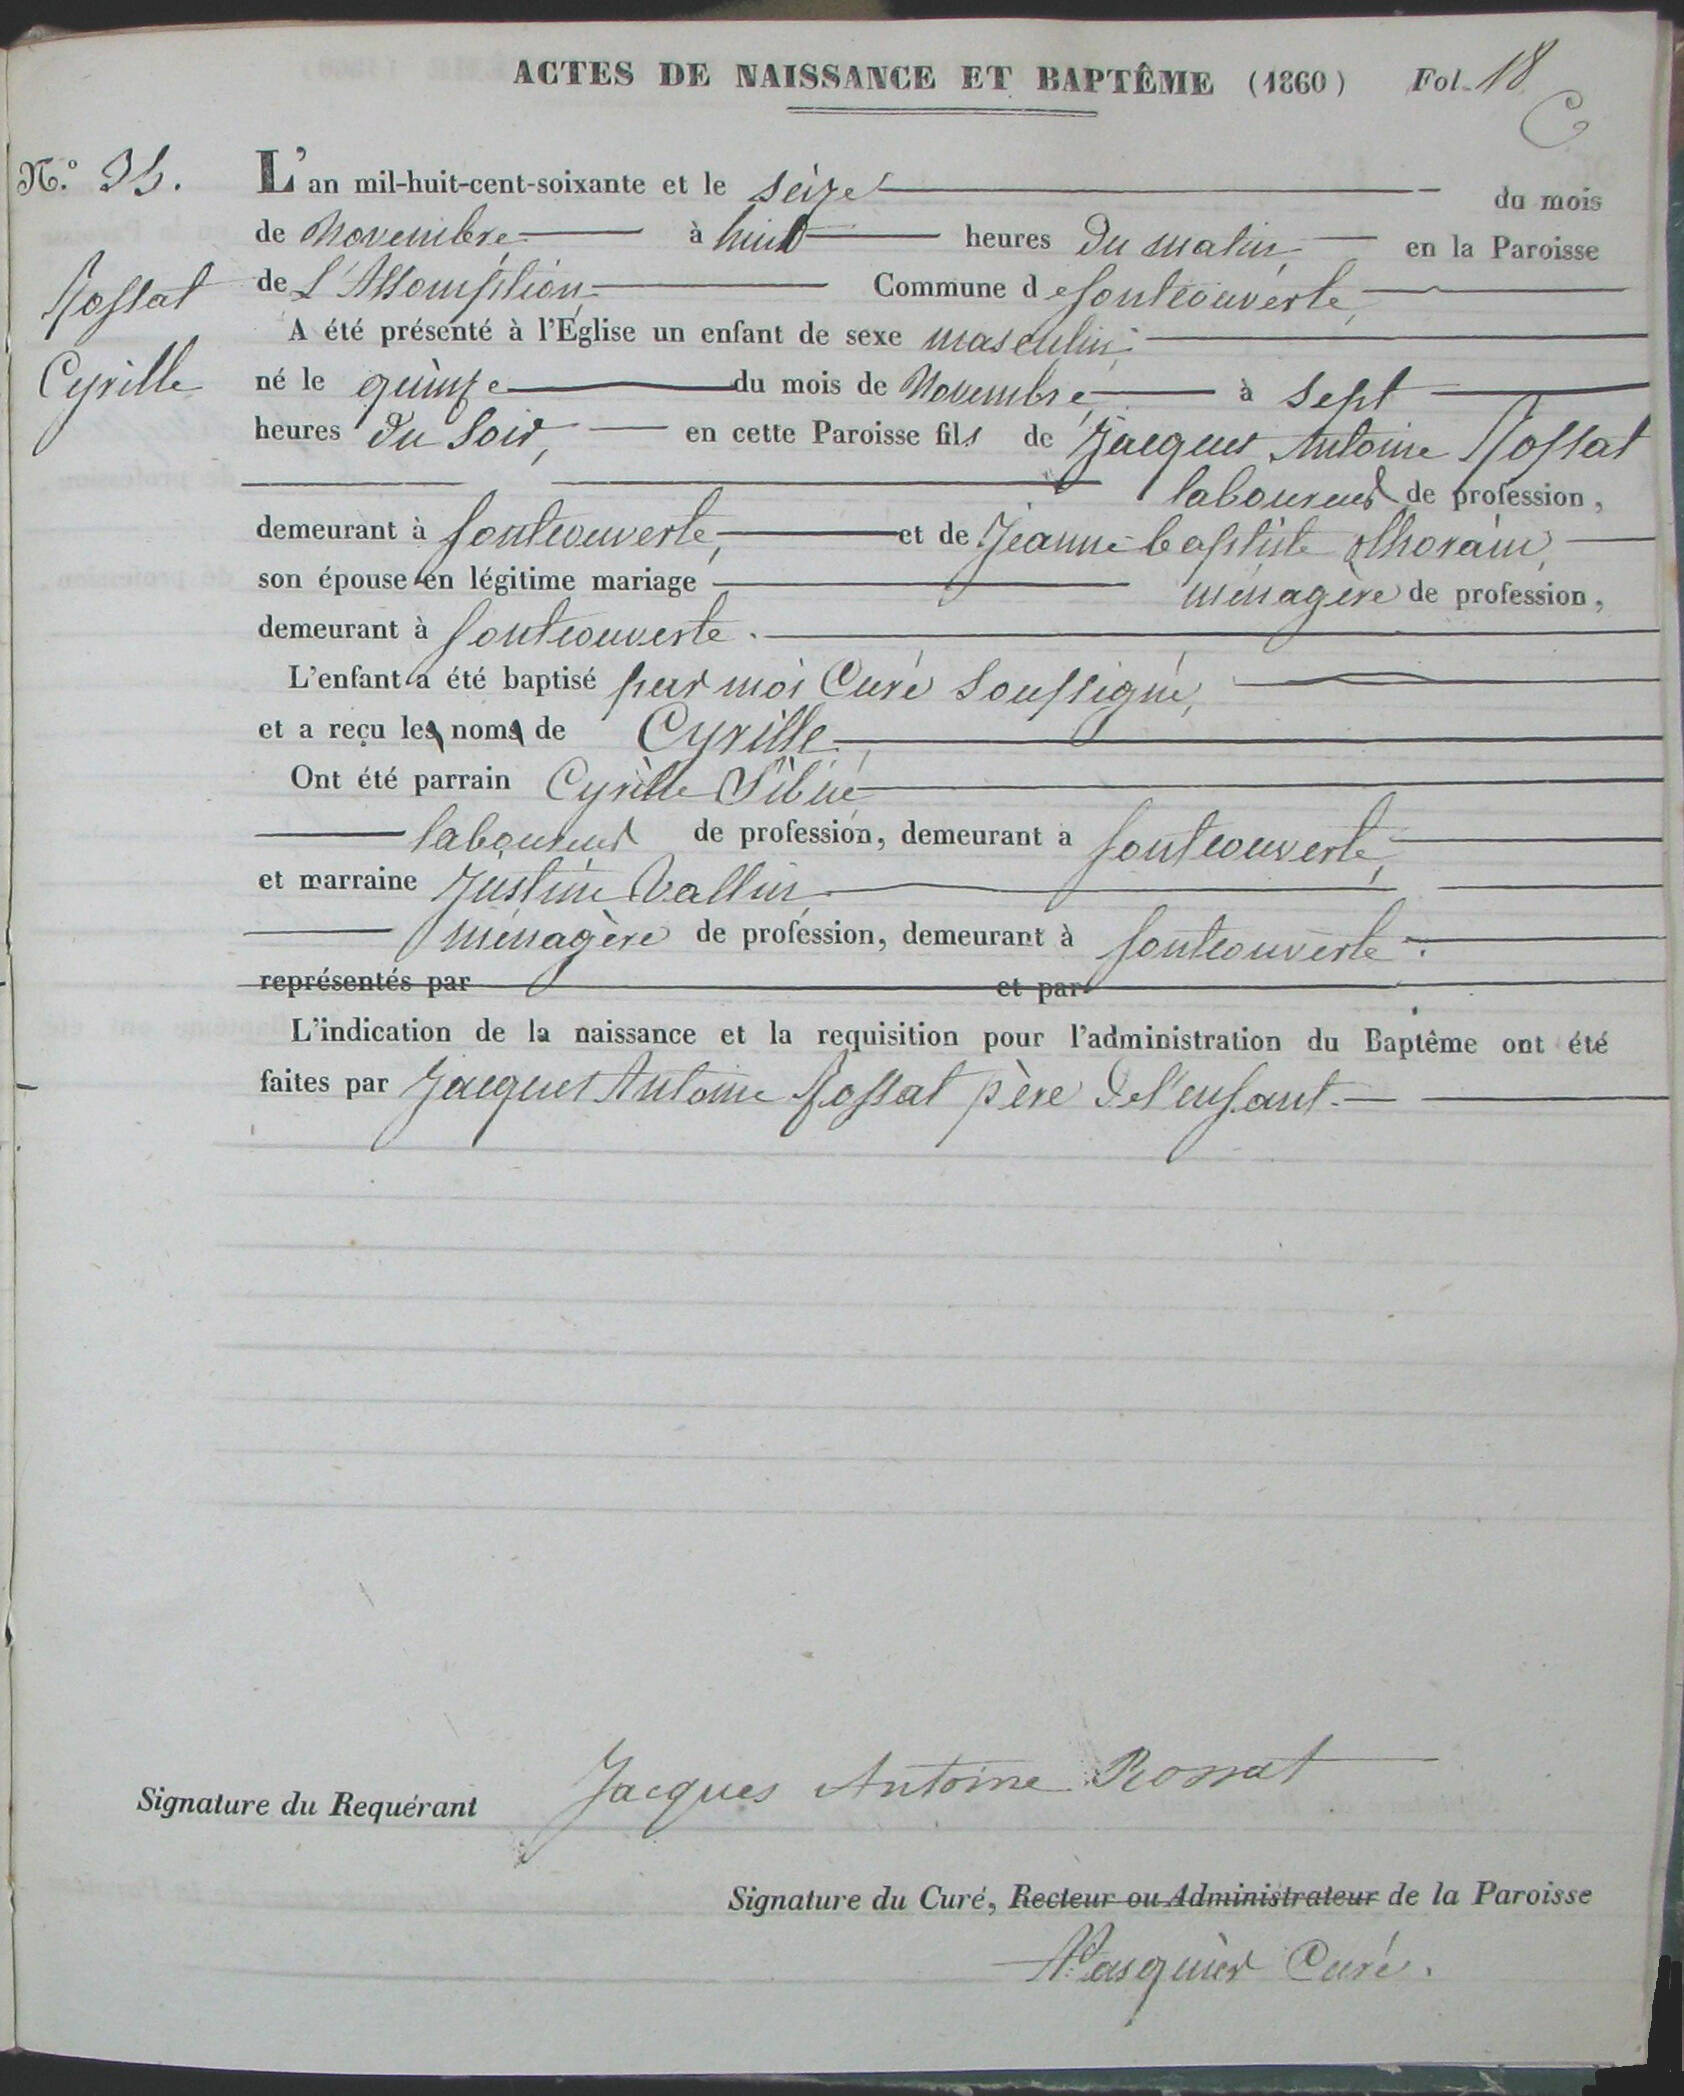 ACTES DE NAISSANCE ET BAPTÊME (1860) Fol. 18
C
N.º 35.
L'an mil-huit-cent-soixante et le seize du mois
de Novembre à huit heures du matin en la Paroisse
Rossat
de L'Assomption Commune de fontcouverte,
A été présenté à l'Église un enfant de sexe masculin
Cyrille
né le quinze du mois de Novembre à sept
heures du soir, en cette Paroisse fils de Jacques Antoine Rossat
laboureur de profession,
demeurant à fontcouverte, et de Jeanne baptiste
son épouse en légitime mariage ménagère de profession,
demeurant à fontcouverte.
L'enfant a été baptisé par moi Curé soussigné,
et a reçu les noms de Cyrille
Ont été parrain Cyrille Sibué
laboureur de profession, demeurant a fontcouverte,
et marraine Justine Vallin
ménagère de profession, demeurant à fontcouverte.
représentés par et par
L'indication de la naissance et la requisition pour l'administration du Baptême ont été
faites par Jacques Antoine Rossat père de l'enfant.
Signature du Requérant Jacques Antoine Rossat
Signature du Curé, Recteur ou Administrateur de la Paroisse
Pasquier Curé.